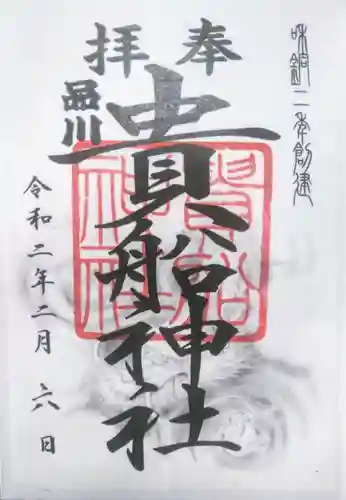 和銅二年創建
奉拝
品川
貴船神社
令和二年二月六日